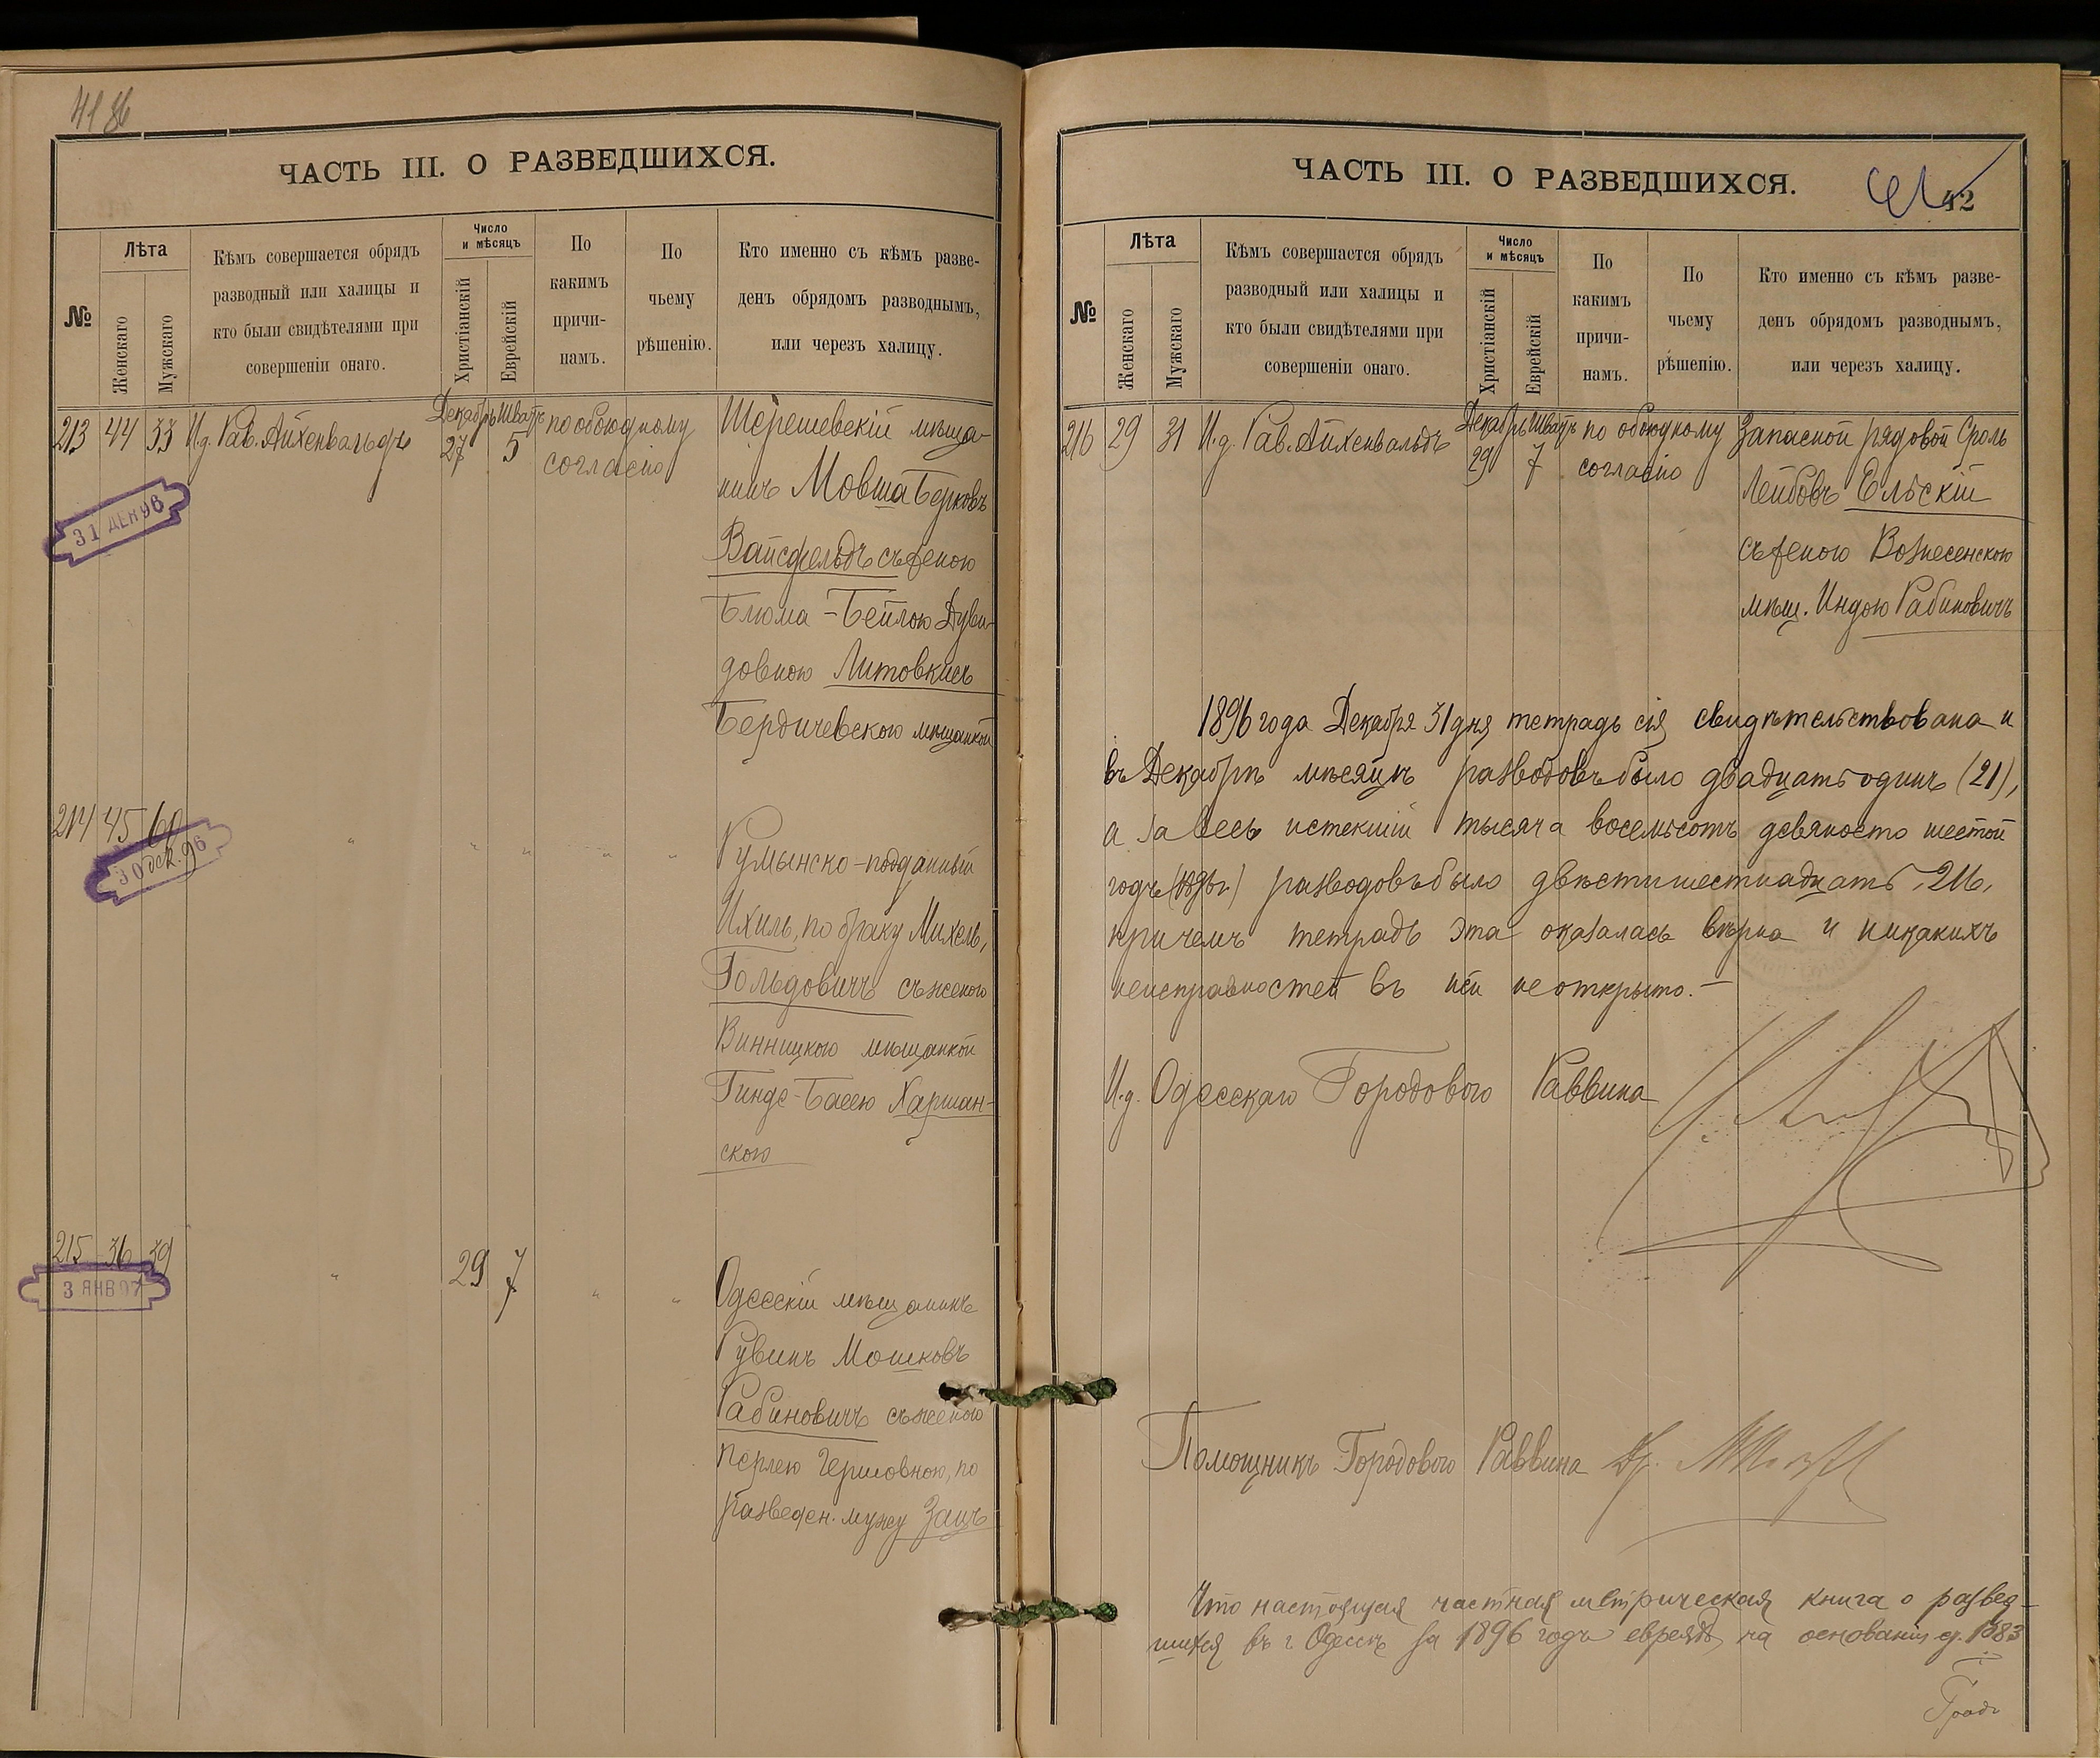 41 86
ЧАСТЬ III. О РАЗВЕДШИХСЯ.
№
Лѣта
Женскаго
Мужскаго
Кѣмъ совершается обрядъ
разводный или халицы и
кто были свидѣтелями при
совершеніи онаго.
Число
и мѣсяцъ
Христіанскій
Еврейскій
По
какимъ
причи-
намъ.
По
чьему
рѣшенію.
Кто именно съ кѣмъ разве-
денъ обрядомъ разводнымъ,
или черезъ халицу.
213 44 33 И.д. Рав. Айхенвальдъ Декабрь 27 Шватъ 5 по обоюдному
согласію
Шерешевскій мѣща-
нинъ Мовша Берковъ
Вайсфельдъ съ женою
Блюма-Бейлою Дуви-
довною Литовкисъ
Бердичевскою мѣщанкой
31 ДЕК 96
214 45 60 " " " " "
30 дек. 96
Румынско-подданный
Ихиль, по браку Михель,
Гольдовичъ съ женою
Винницкою мѣщанкой
Гинде-Басею Харшан-
скою
215 36 39 " 29 7 " "
3 ЯНВ 97
Одесскій мѣщанинъ
Рувинъ Мошковъ
Рабиновичъ съ женою
Перлею Гершовною, по
разведен. мужу Зацъ
ЧАСТЬ III. О РАЗВЕДШИХСЯ.
41 42
№
Лѣта
Женскаго
Мужскаго
Кѣмъ совершается обрядъ
разводный или халицы и
кто были свидѣтелями при
совершеніи онаго.
Число
и мѣсяцъ
Христіанскій
Еврейскій
По
какимъ
причи-
намъ.
По
чьему
рѣшенію.
Кто именно съ кѣмъ разве-
денъ обрядомъ разводнымъ,
или черезъ халицу.
216 29 31 И.д. Рав. Айхенвальдъ Декабрь 29 Шватъ 7 по обоюдному
согласію
Запасной рядовой Сроль
Лейбовъ Ельскій
съ женою Вознесенскою
мѣщ. Индою Рабиновичъ
1896 года Декабря 31 дня тетрадь сія свидѣтельствована и
въ Декабрѣ мѣсяцѣ разводовъ было двадцать одинъ (21),
а за весь истекшій тысяча восемьсотъ девяносто шестой
годъ (1896 г.) разводовъ было двѣсти шестнадцать, 216,
причемъ тетрадь эта оказалась вѣрна и никакихъ
неисправностей въ ней не открыто. —
И.д. Одесскаго Городового Раввина
Помощникъ Городового Раввина Др.
Что настоящая частная метрическая книга о развед-
шихся въ г. Одессѣ за 1896 годъ евреяхъ на основаніи ст. 1083
Градъ